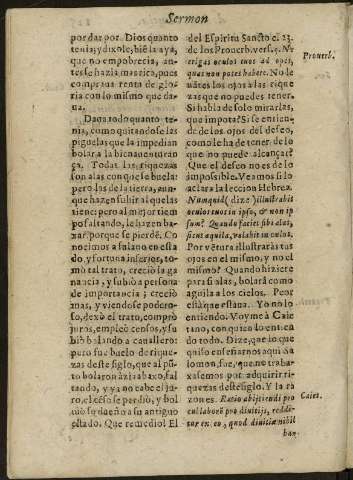 Sermon
por dar por Dios quanto
tenia; y dixole; bié la aya,
que no empobrecia, an-
tes se hazia mas rico, pues
compraua renta de glo-
ria con lo mismo que da-
ua.
Daua todo quanto te-
nia, como quitandose las
piguelas que la impedian
bolar a la bienauenturan-
ça. Todas las riquezas
son alas con que se buela:
pero las de la tierra, aun-
que hazen subir al que las
tiene; pero al mejor tiem
po faltando, le hazen ba-
xar: porque se pierdē. Co
nocimos a fulano en esta
do, y fortuna inferior, to-
mò tal trato, creciò la ga
nancia, y subiò a persona
de importancia; creciò
mas, y viendose podero-
so, dexò el trato, comprò
juros, empleò censos, y su
biò bolando a cauallero:
pero fue buelo de rique-
zas deste siglo, que al pū-
to bolaron àzia baxo, fal
tando, y ya no cabe el ju-
ro, el céso se perdiò, y bol
uiò su dueño a su antiguo
estado. Que remedio? El
del Espiritu Sancto c. 23.
de los Prouerb. vers. 5. Ne
erigas oculos tuos ad opes,
quas non potes habere. No le
uātes los ojos a las rique
zas que no puedes tener.
Si habla de solo mirarlas,
que impota? Si se entien-
de de los ojos del desseo,
como le ha de tener de lo
que no puede alcançar?
Que el desseo no es de lo
impossible. Veamos si lo
aclara la leccion Hebrea.
Numquid (dize) illustrabis
oculos tuos in ipso, & non ip
sum? Quando faciet sibi alas,
sicut aquila, volabit in cælos.
Por vētura illustraràs tus
ojos en el mismo, y no el
mismo? Quando hiziere
para si alas, bolarà como
aguila a los cielos. Peor
està que estaua. Yo no lo
entiendo. Voyme à Caie
tano, con quien lo entien
do todo. Dize, que lo que
quiso enseñarnos aqui Sa
lomon, fue, que no traba-
xasemos por adquirir ri-
quezas deste siglo. Y la ra
zones. Ratio abijciendi pro
cul labore pro diuitijs, reddi-
tur ex eo, quod diuitiæ nihil
ha-
Prouerb.
Caiet.